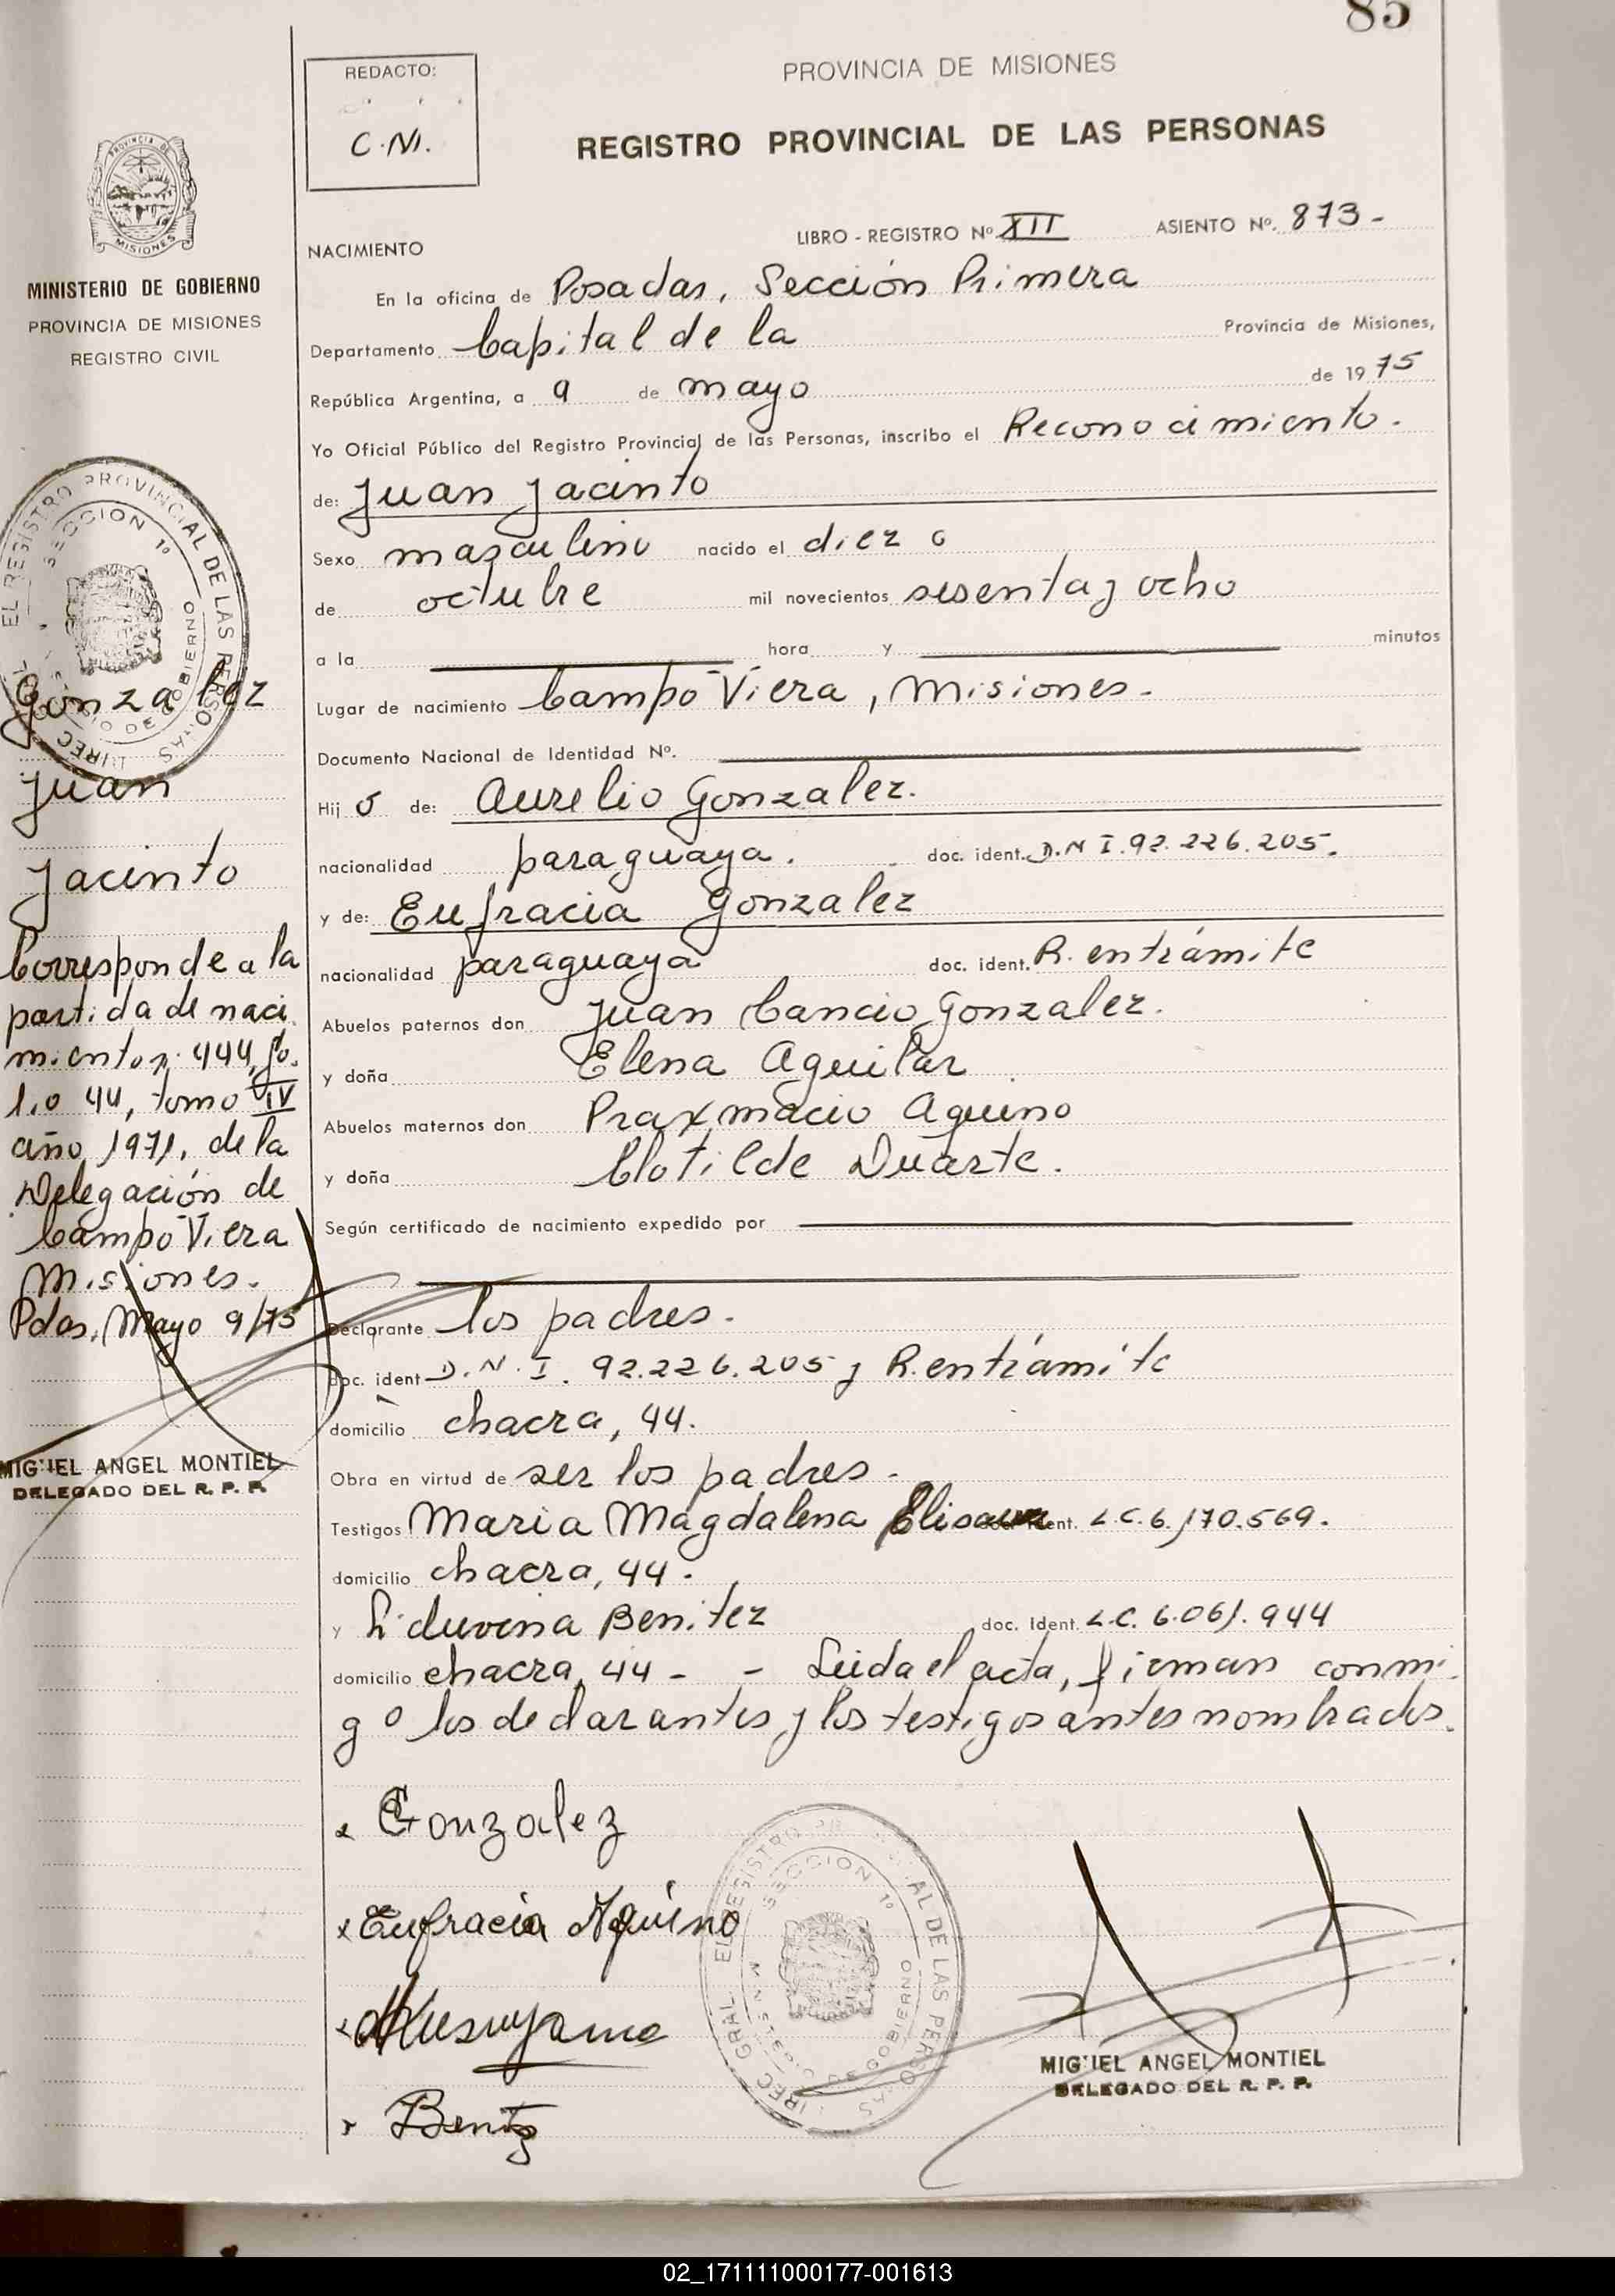 85
REDACTO:
C.N.
PROVINCIA DE MISIONES
REGISTRO PROVINCIAL DE LAS PERSONAS
LIBRO - REGISTRO Nº XII ASIENTO Nº. 873 -
NACIMIENTO
En la oficina de Posadas, Sección Primera
Departamento Capital de la Provincia de Misiones,
República Argentina, a 9 de mayo de 1975
Yo Oficial Público del Registro Provincial de las Personas, inscribo el Reconocimiento.
de: Juan Jacinto
Sexo masculino nacido el diez
de octubre mil novecientos sesenta y ocho
a la hora y minutos
Lugar de nacimiento Campo Viera, Misiones.
Documento Nacional de Identidad Nº.
Hijo de: Aurelio Gonzalez.
nacionalidad paraguaya. doc. ident. D.N I.92.226.205.
y de: Eufracia Gonzalez
nacionalidad paraguaya doc. ident. R. entrámite
Abuelos paternos don Juan Cancio Gonzalez.
y doña Elena Aguilar
Abuelos maternos don Aquino
y doña Clotilde Duarte.
Según certificado de nacimiento expedido por
Declarante los padres.
doc. ident D.N.I. 92.226.205 y R.entrámite
domicilio chacra, 44.
Obra en virtud de ser los padres.
Testigos Maria Magdalena ent. L.C.6.170.569.
domicilio chacra, 44.
y Liduvina Benitez doc. Ident. L.C. 6.061.944
domicilio chacra, 44 - - Leida el acta, firman conmi
go los declarantes y los testigos antes nombrados.
Gonzalez
Eufracia Aquino
Benitez
EL REGISTRO PROVINCIAL DE LAS PERSONAS
SECCION 1º
MIGUEL ANGEL MONTIEL
DELEGADO DEL R. P. P.
PROVINCIA DE MISIONES
MINISTERIO DE GOBIERNO
PROVINCIA DE MISIONES
REGISTRO CIVIL
EL REGISTRO PROVINCIAL DE LAS PERSONAS
SECCION 1º
Gonzalez
Juan
Jacinto
Corresponde a la
partida de naci
miento n. 444, fo.
lio 44, tomo IV
año 1971, de la
Delegación de
Campo Viera
Misiones.
Pdas, Mayo 9/75
MIGUEL ANGEL MONTIEL
DELEGADO DEL R. P. P.
02_171111000177-001613